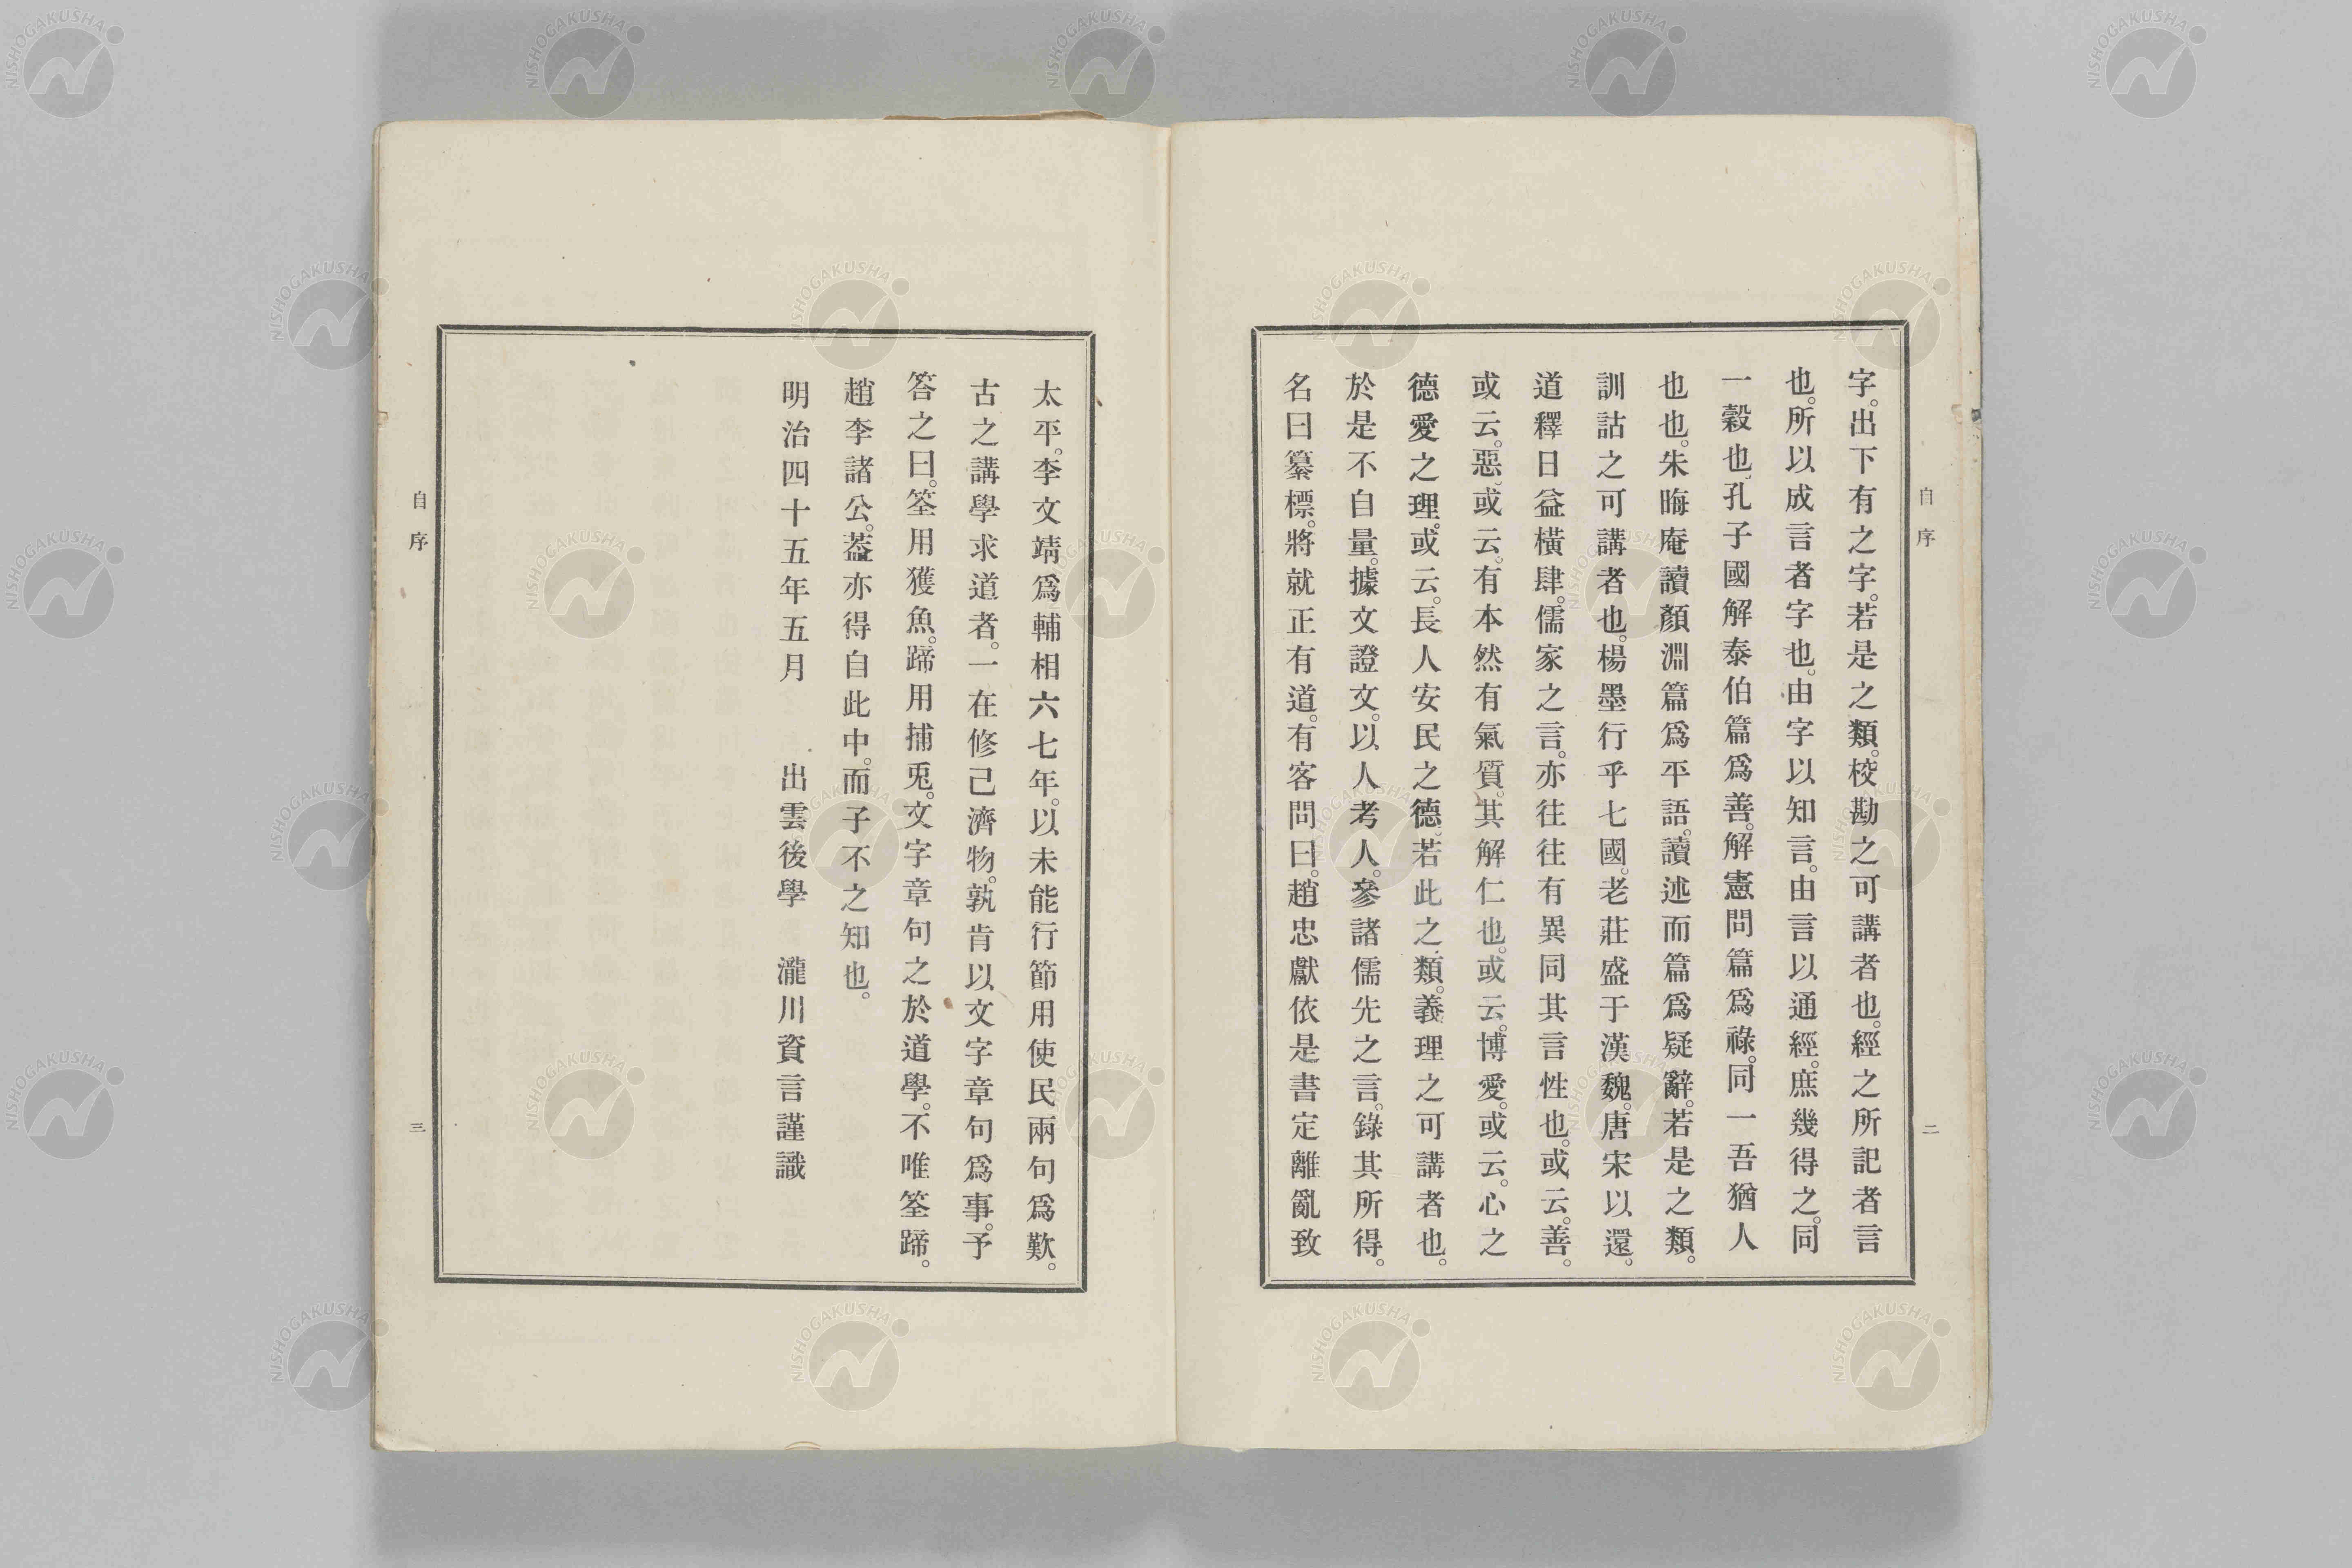 自序
二
字。出下有之字。若是之類。校勘之可講者也。經之所記者言
也。所以成言者字也。由字以知言。由言以通經。庶幾得之。同
一穀也、孔子國解泰伯篇爲善。解憲問篇爲祿。同一吾猶人
也也。朱晦庵讀顏淵篇爲平語。讀述而篇爲疑辭。若是之類。
訓詁之可講者也。楊墨行乎七國。老莊盛于漢魏。唐宋以還。
道釋日益橫肆。儒家之言。亦往往有異同其言性也。或云。善。
或云。惡、或云。有本然有氣質。其解仁也。或云。博愛。或云。心之
德愛之理。或云。長人安民之德、若此之類。義理之可講者也。
於是不自量。據文證文。以人考人。參諸儒先之言。錄其所得。
名曰纂標。將就正有道。有客問曰。趙忠獻依是書定離亂致
太平。李文靖爲輔相六七年。以未能行節用使民兩句爲歎。
古之講學求道者。一在修己濟物。孰肯以文字章句爲事。予
答之曰。筌用獲魚。蹄用捕兎。文字章句之於道學。不唯筌蹄。
趙李諸公。葢亦得自此中。而子不之知也。
明治四十五年五月　出雲後學　瀧川資言謹識
自序
三
NISHOGAKUSHA